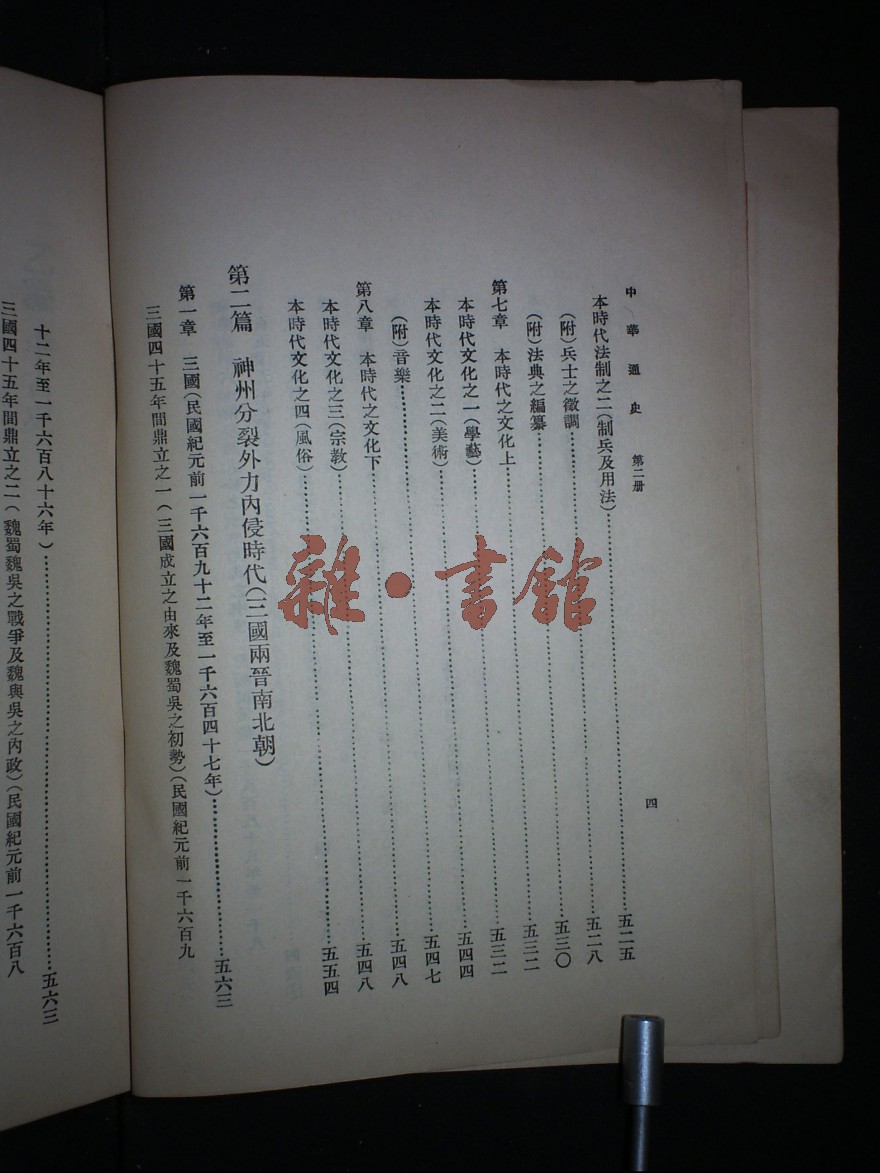 中華通史 第二册 四
本時代法制之二(制兵及用法)……五二五
(附)兵士之徵調……五二八
(附)法典之編纂……五三〇
第七章 本時代之文化上……五三二
本時代文化之一(學藝)……五三二
本時代文化之二(美術)……五四四
(附)音樂……五四七
第八章 本時代之文化下……五四八
本時代文化之三(宗教)……五四八
本時代文化之四(風俗)……五五四
第二篇 神州分裂外力內侵時代(三國兩晉南北朝)
第一章 三國(民國紀元前一千六百九十二年至一千六百四十七年)……五六三
三國四十五年間鼎立之一(三國成立之由來及魏蜀吳之初勢)(民國紀元前一千六百九
十二年至一千六百八十六年)……五六三
三國四十五年間鼎立之二(魏蜀魏吳之戰爭及魏與吳之內政)(民國紀元前一千六百八
雜·書館